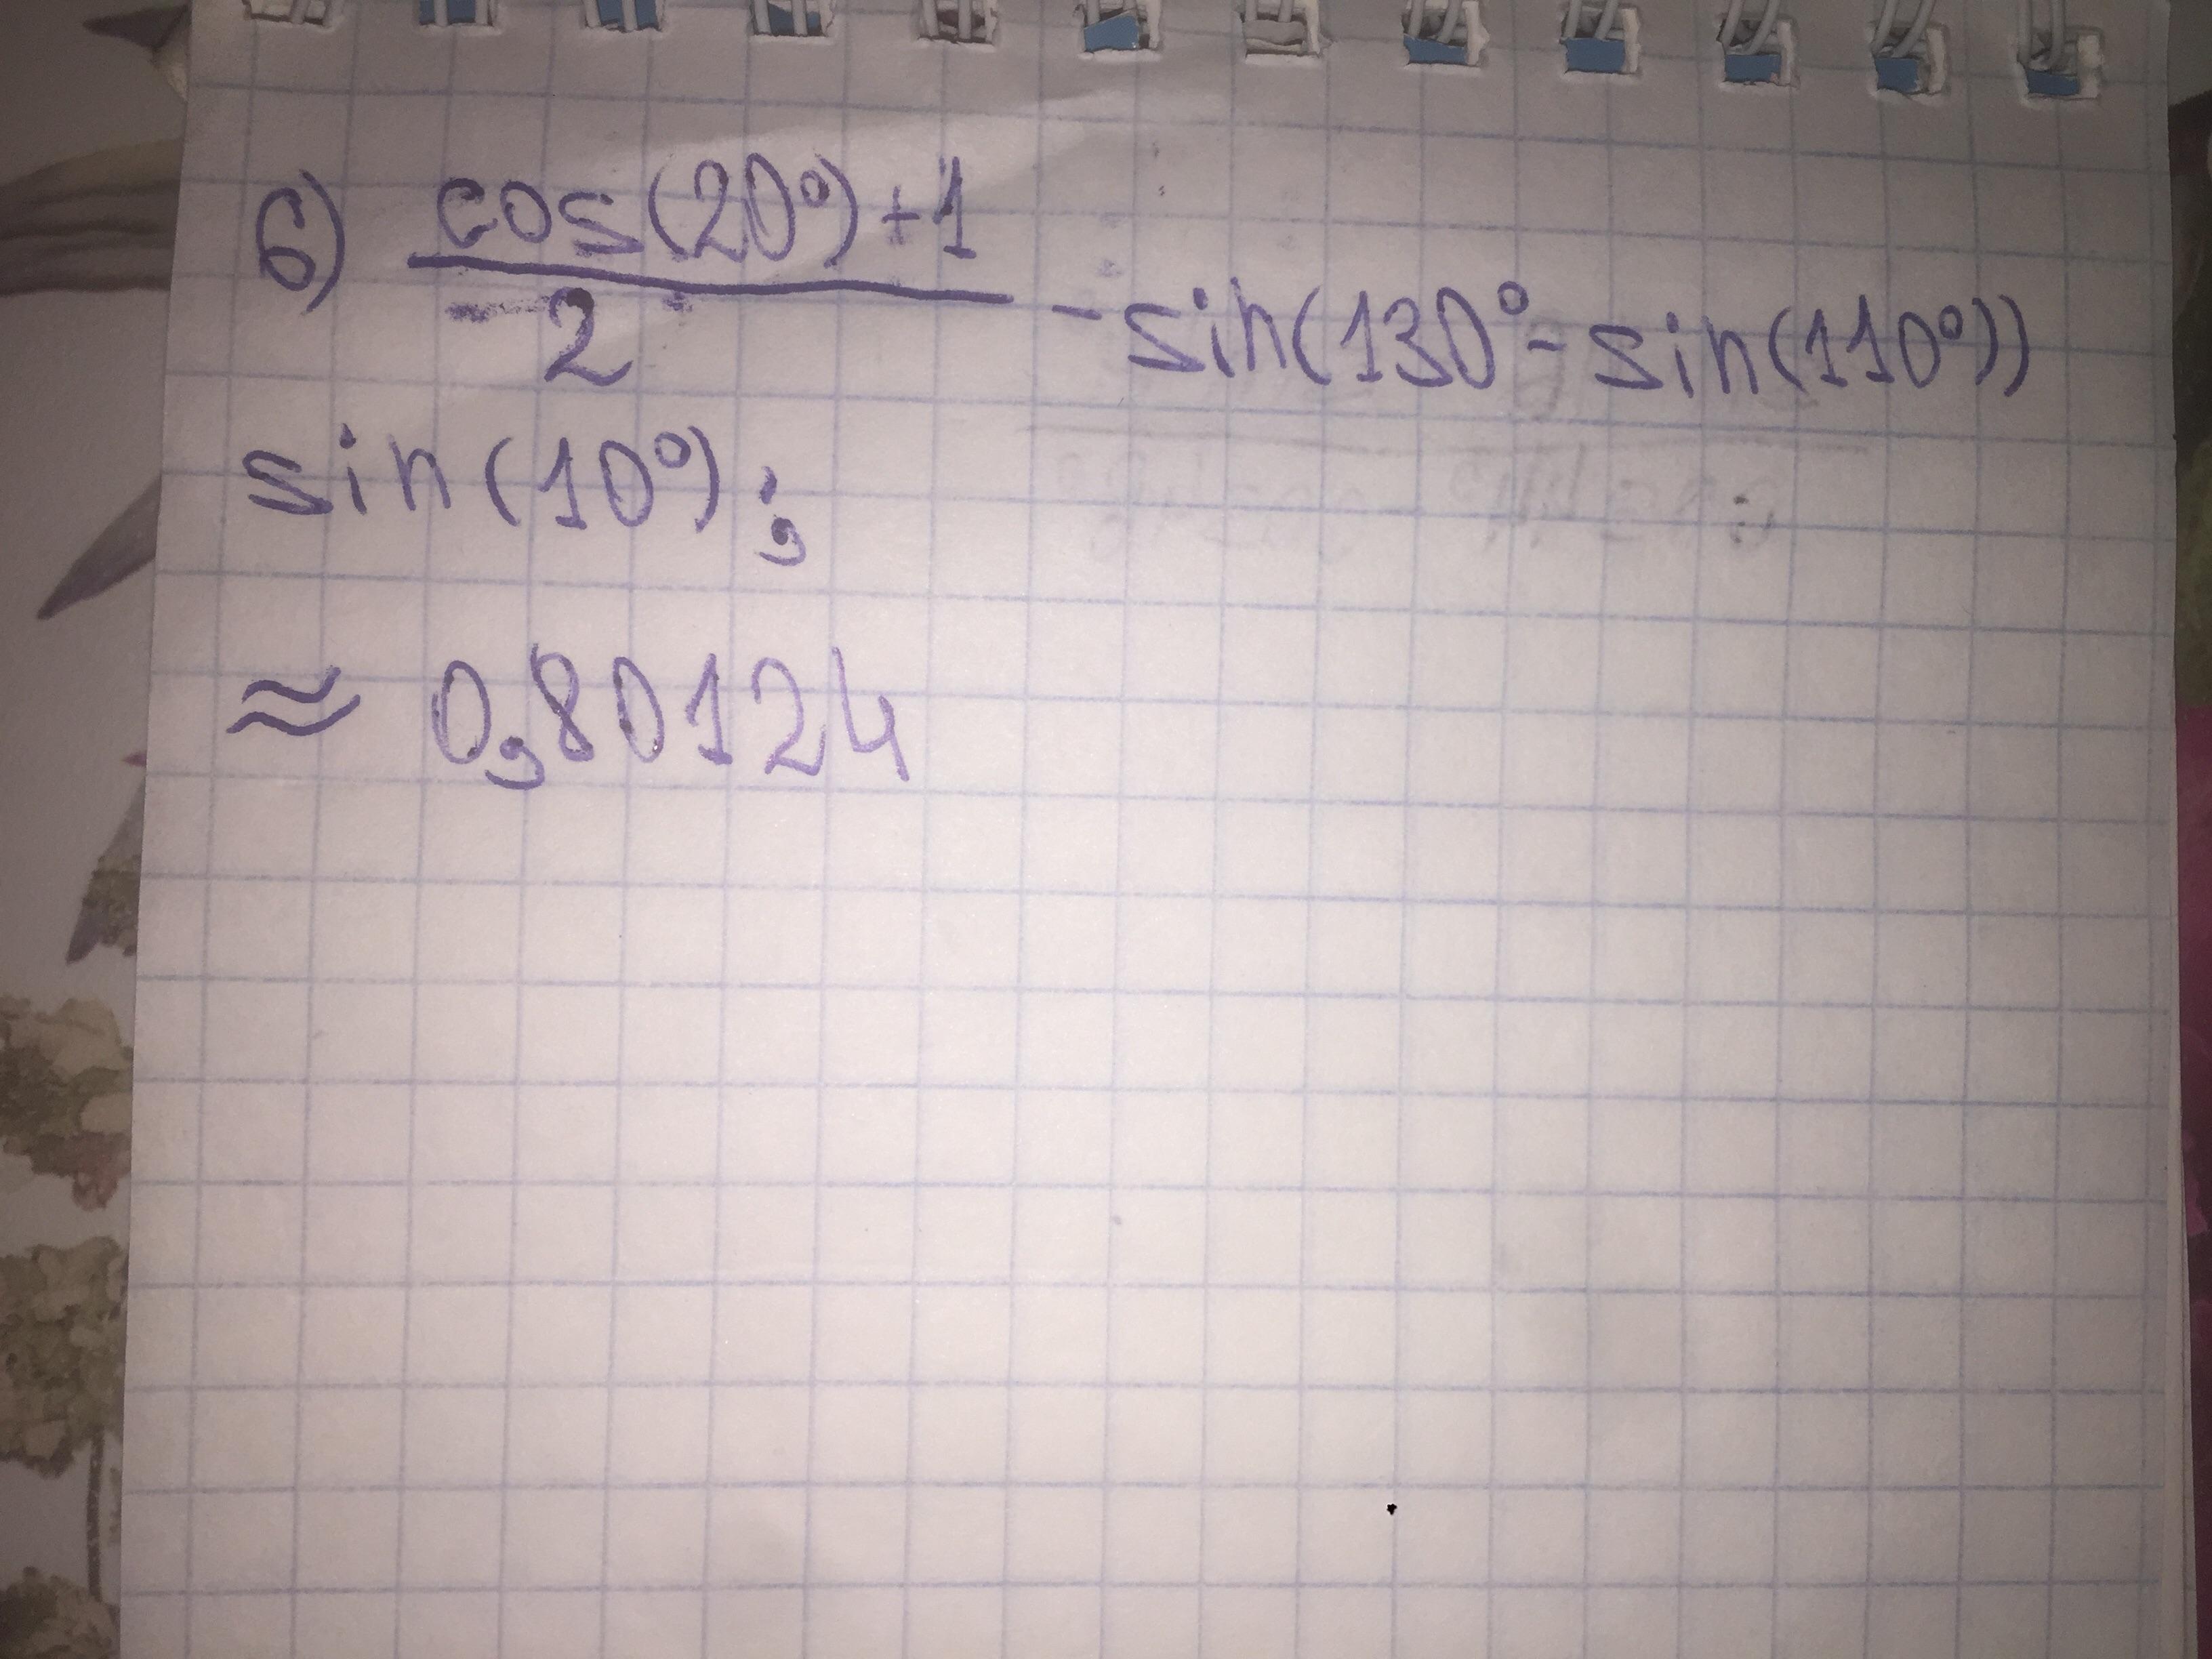 б) cos(20°)+1 / 2 - sin(130° - sin(110°))
sin(10°);
≈ 0,80124